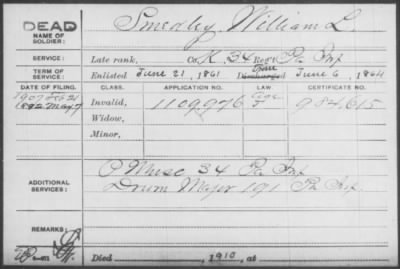 DEAD
NAME OF SOLDIER: Smedley, William L.
SERVICE: Late rank, Co. K, 34 Reg't Pa Inf
TERM OF SERVICE: Enlisted June 21, 1861 Discharged June 6, 1864
DATE OF FILING. CLASS. APPLICATION NO. LAW CERTIFICATE NO.
1907 Feb 21
1892 May 7 Invalid, 1109976 984,615
Widow,
Minor,
ADDITIONAL SERVICES: 34 Pa Inf
Drum Major 191 Pa Inf.
REMARKS:
Died, 1910, at